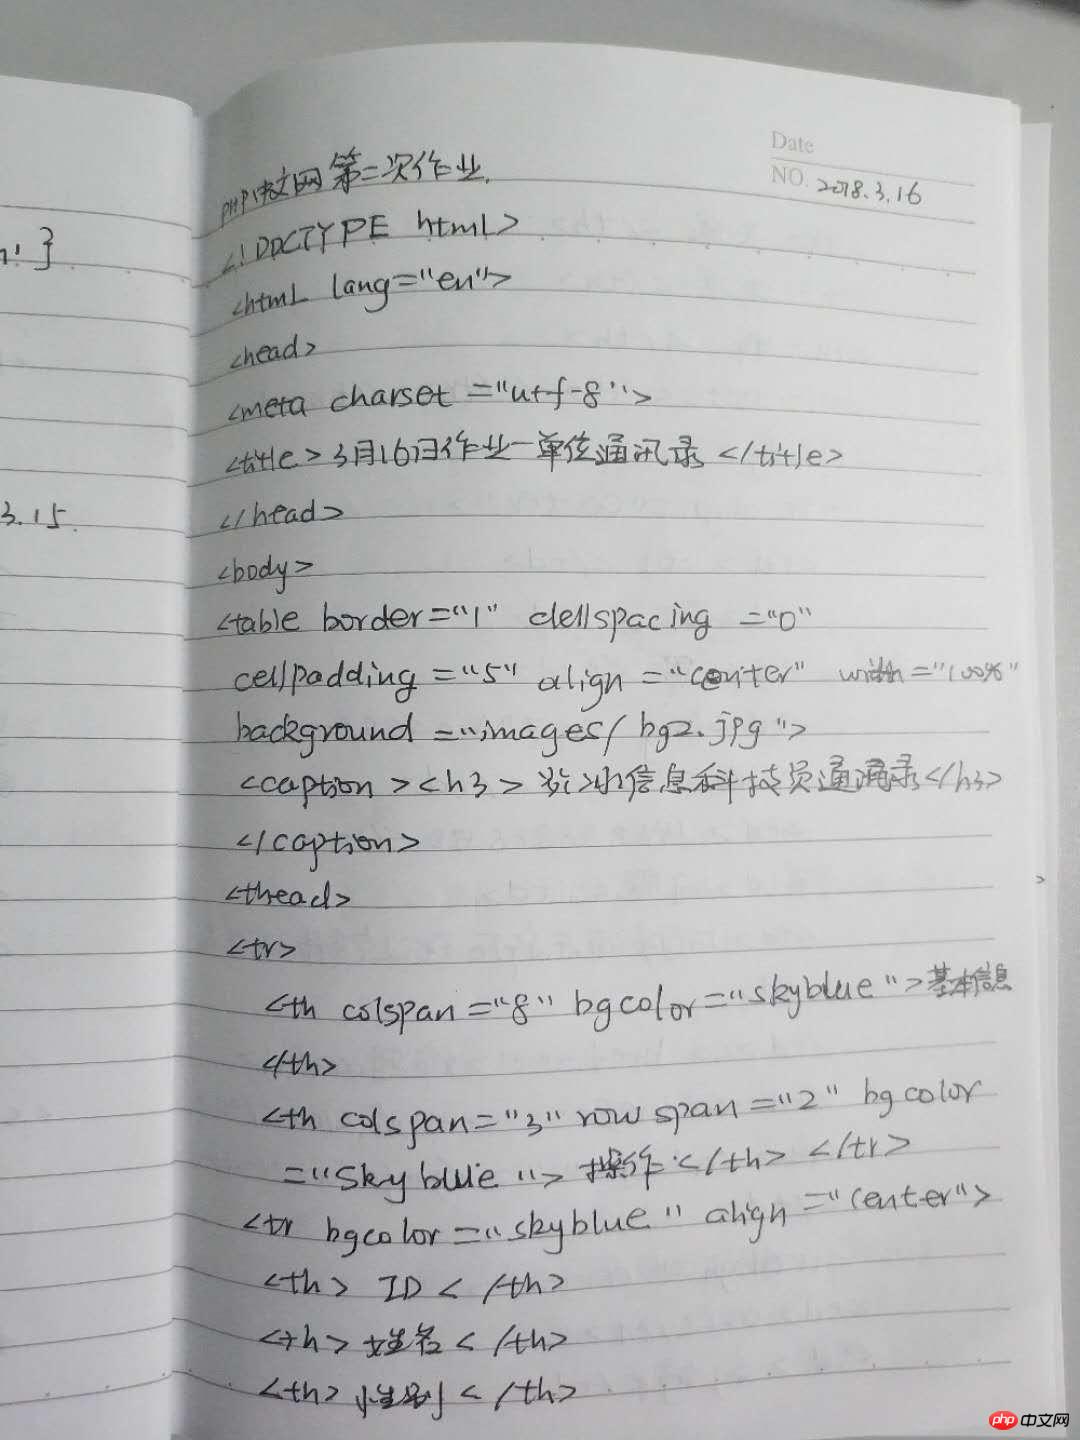 Date
NO. 2018.3.16
PHP中文网第二次作业.
<!DOCTYPE html>
<html lang="en">
<head>
<meta charset="utf-8">
<title>3月16日作业一单位通讯录</title>
</head>
<body>
<table border="1" cellspacing="0"
cellpadding="5" align="center" width="100%"
background="images/bg2.jpg">
<caption><h3>信息科技员通讯录</h3>
</caption>
<thead>
<tr>
<th colspan="8" bgcolor="skyblue">基本信息
</th>
<th colspan="3" rowspan="2" bgcolor
="skyblue">操作</th></tr>
<tr bgcolor="skyblue" align="center">
<th>ID</th>
<th>姓名</th>
<th>性别</th>
}
3.15
php 中文网